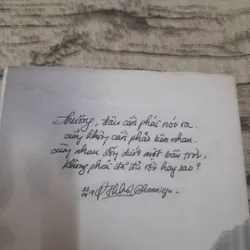 Thương, đâu cần phải nói ra.
cũng không cần phải bên nhau.
cùng nhau sống dưới một bầu trời,
không phải đã đủ rồi hay sao?